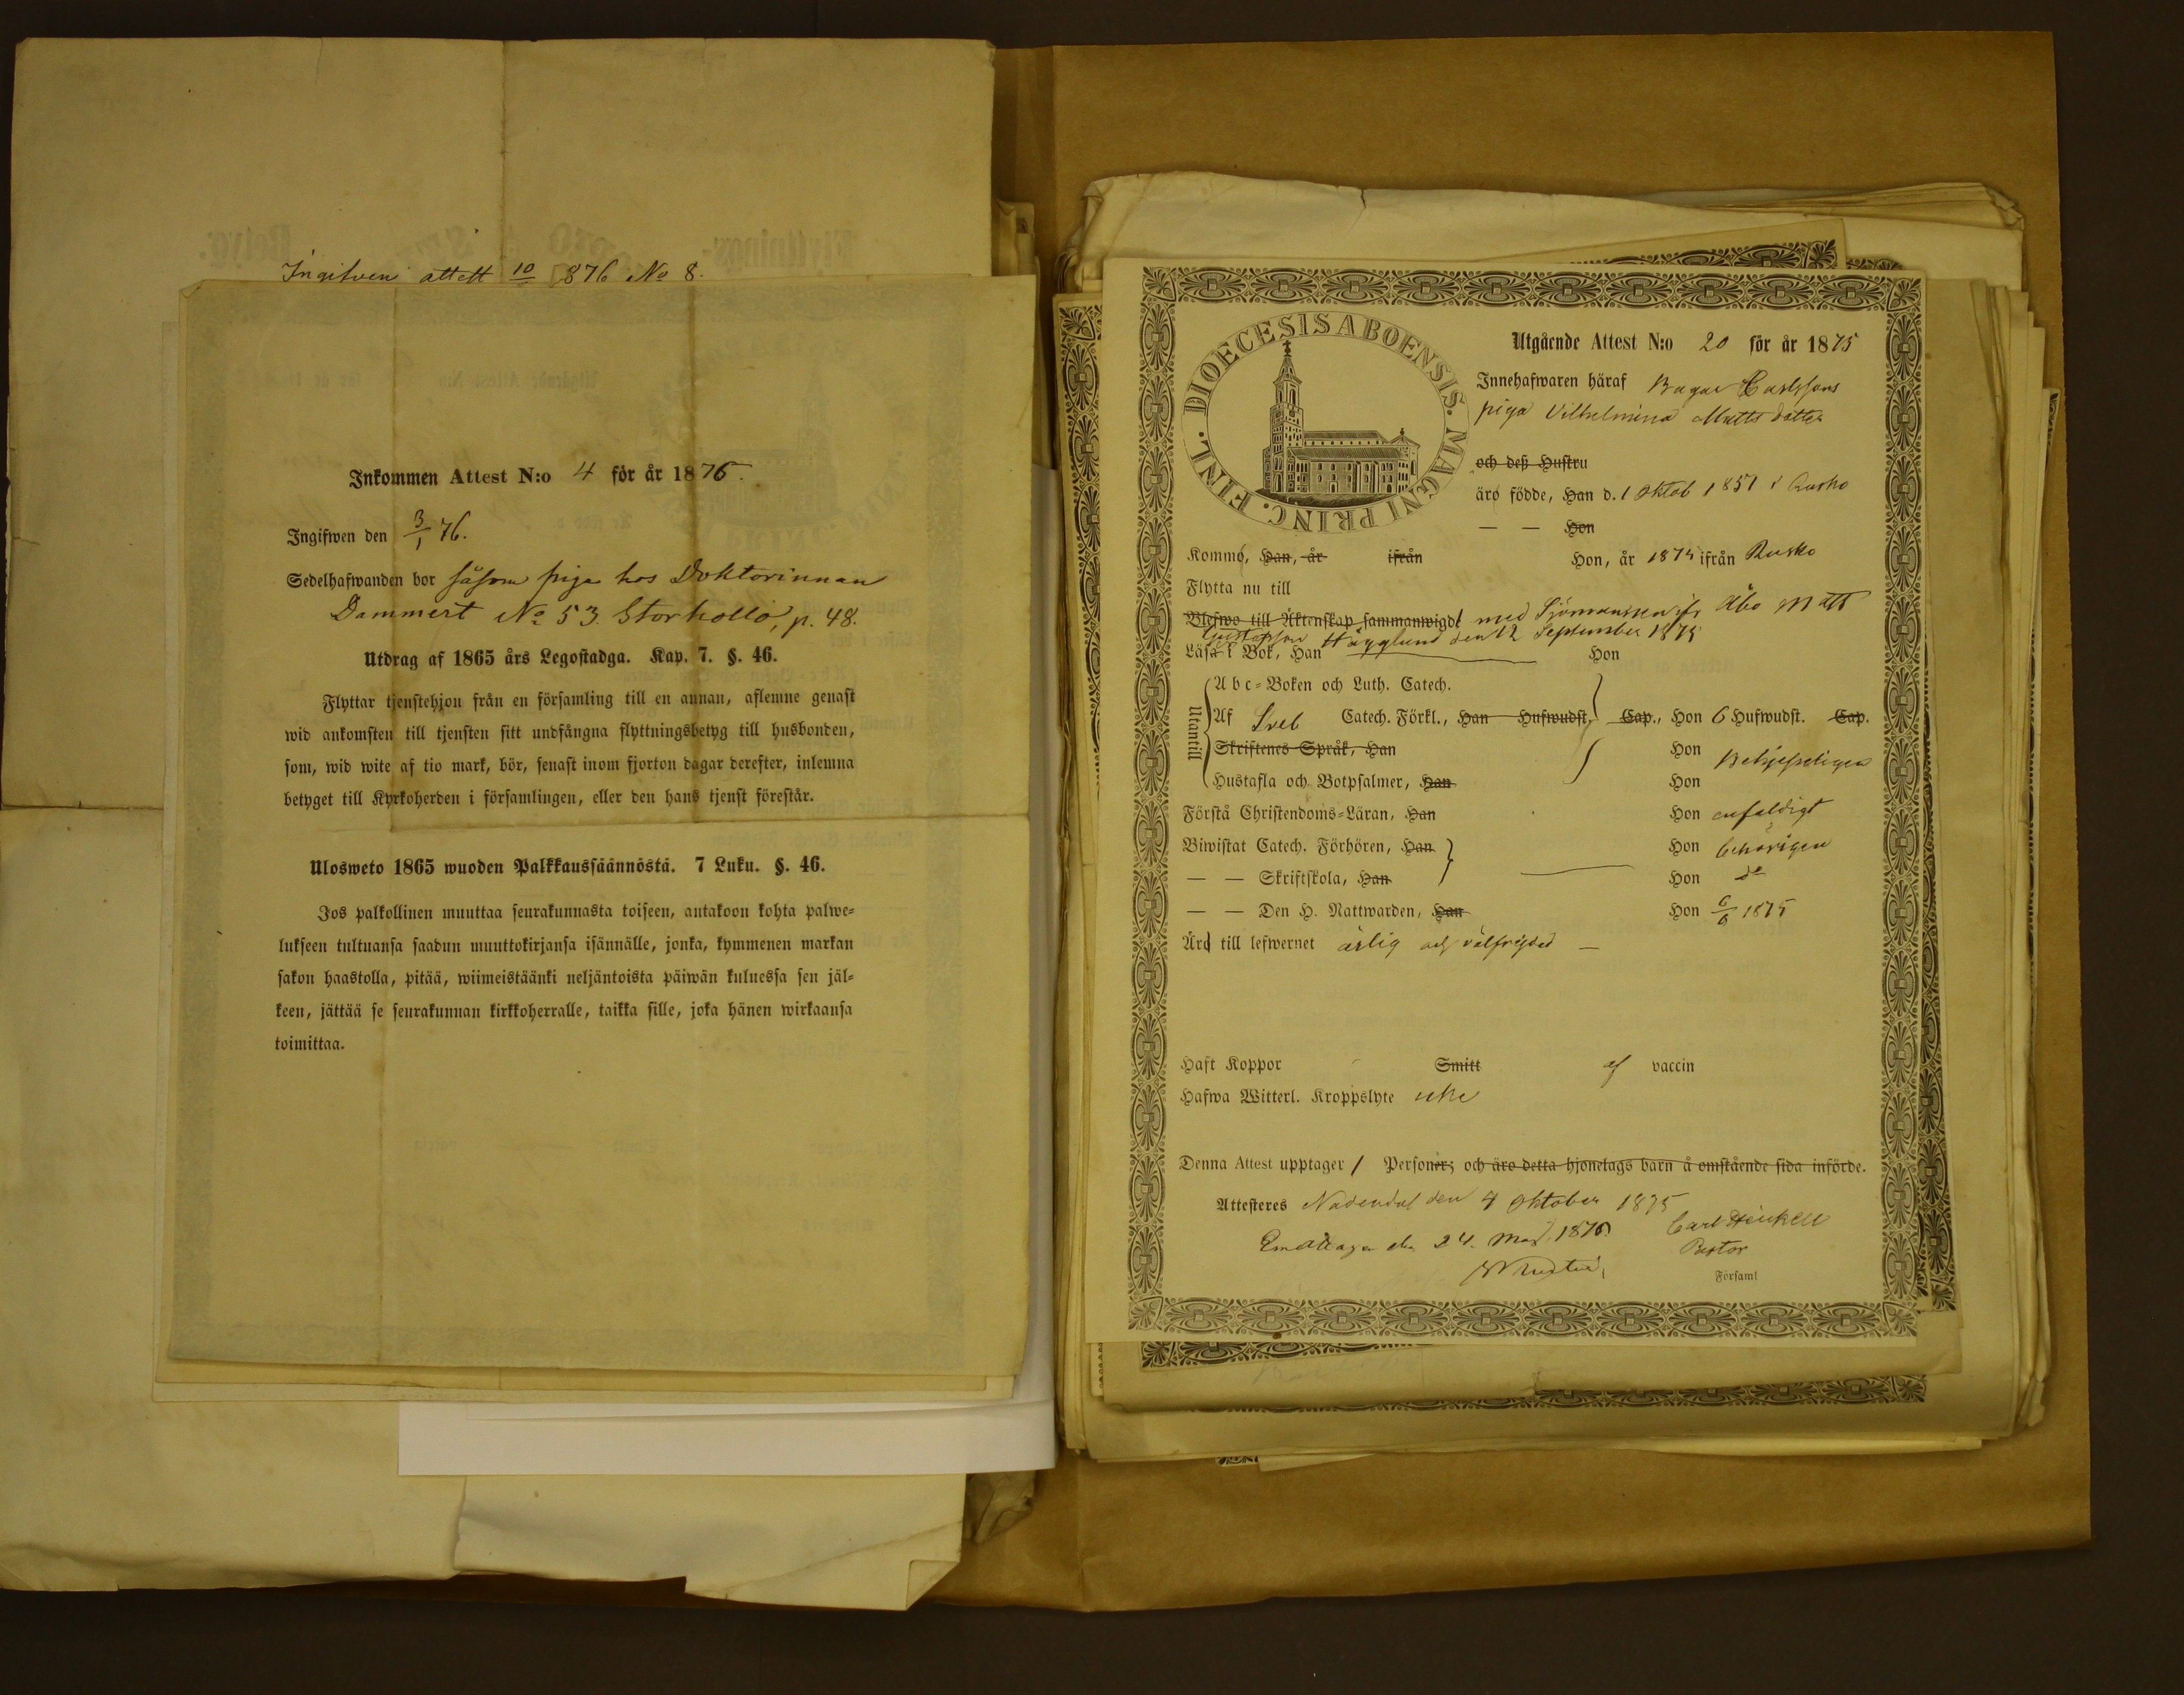 Ingifven attest 10 1876 No 8.
Inkommen Attest N:o 4 för år 1876.
Ingifwen den 3/1 76.
Sedelhafwanden bor såsom piga hos Doktorinnan
Dammert No 53 Storhollo, p. 48.
Utdrag af 1865 års Legostadga. Kap. 7. §. 46.
Flyttar tjenstehjon från en församling till en annan, aflemne genast
wid ankomsten till tjensten sitt undfångna flyttningsbetyg till husbonden,
som, wid wite af tio mark, bör, senast inom fjorton dagar derefter, inlemna
betyget till Kyrkoherden i församlingen, eller den hans tjenst förestår.
Ulosweto 1865 wuoden Palkkaussäännöstä. 7 Luku. §. 46.
Jos palkollinen muuttaa seurakunnasta toiseen, antakoon kohta palwe-
lukseen tultuansa saadun muuttokirjansa isännälle, jonka, kymmenen markan
sakon haastolla, pitää, wiimeistäänki neljäntoista päiwän kuluessa sen jäl-
keen, jättää se seurakunnan kirkkoherralle, taikka sille, joka hänen wirkaansa
toimittaa.
DIOECESIS ABOENSIS. MAGNI PRINC. FINL.
Utgående Attest N:o 20 för år 1875
Innehafwaren häraf Bagar Carlssons
piga Vilhelmina Mattsdotter
och deß Hustru
äro födde, Han d. 1 Oktob 1851 i Rusko
— — Hon
Komme, Han, år ifrån Hon, år 1874 ifrån Rusko
Flytta nu till
Blefwo till Äktenskap sammanwigde med Sjömannen ifr Åbo Matts
Gustafsson Hägglund den 12 September 1875
Läsa i Bok, Han Hon
Utantill
Abc-Boken och Luth. Catech.
Af Sveb Catech. Förkl., Han Hufwudst. Cap., Hon 6 Hufwudst. Cap.
Skriftenes Språk, Han Hon
Hustafla och Botpsalmer, Han Hon
Förstå Christendoms-Läran, Han Hon enfaldigt
Biwistat Catech. Förhören, Han Hon behörigen
— — Skriftskola, Han Hon do
— — Den H. Nattwarden, Han Hon 6/6 1875
Äro till lefwernet ärlig och välfrejdad —
Haft Koppor Smitt af vaccin
Hafwa Witterl. Kroppslyte icke
Denna Attest upptager 1 Personer; och äro detta hjonelags barn å omstående sida införde.
Attesteres Nådendal den 4 Oktober 1875
Carl Heickell
Pastor
Emottagen den 24. Maj 1876.
Församl